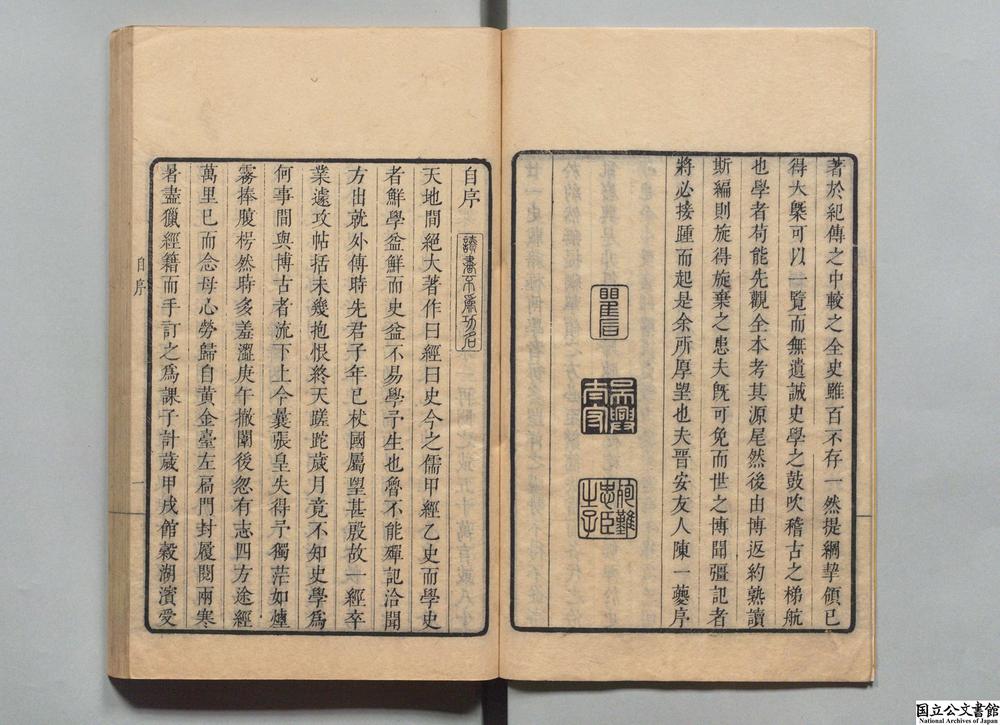 著於紀傳之中較之全史雖百不存一然提綱挈領已
得大槩可以一覽而無遺誠史學之鼓吹稽古之梯航
也學者苟能先觀全本考其源尾然後由博返約熟讀
斯編則旋得旋棄之患夫旣可免而世之博聞彊記者
將必接踵而起是余所厚望也夫晋安友人陳一夔序
吳興
忠臣
自序
讀書不爲功名
天地間絕大著作曰經曰史今之儒甲經乙史而學史
者鮮學益鮮而史益不易學予生也魯不能殫記洽聞
方出就外傳時先君子年已杖國屬望甚殷故一經卒
業遽攻帖括未幾抱恨終天蹉跎歲月竟不知史學爲
何事間與博古者流下上今曩張皇失得予獨茫如煙
霧捧腹楞然時多羞澀庚午撤闈後忽有志四方途經
萬里已而念母心勞歸自黃金臺左扃門封履閱兩寒
暑盡獵經籍而手訂之爲課子計歲甲戌館穀湖濱受
自序
一
国立公文書館
National Archives of Japan